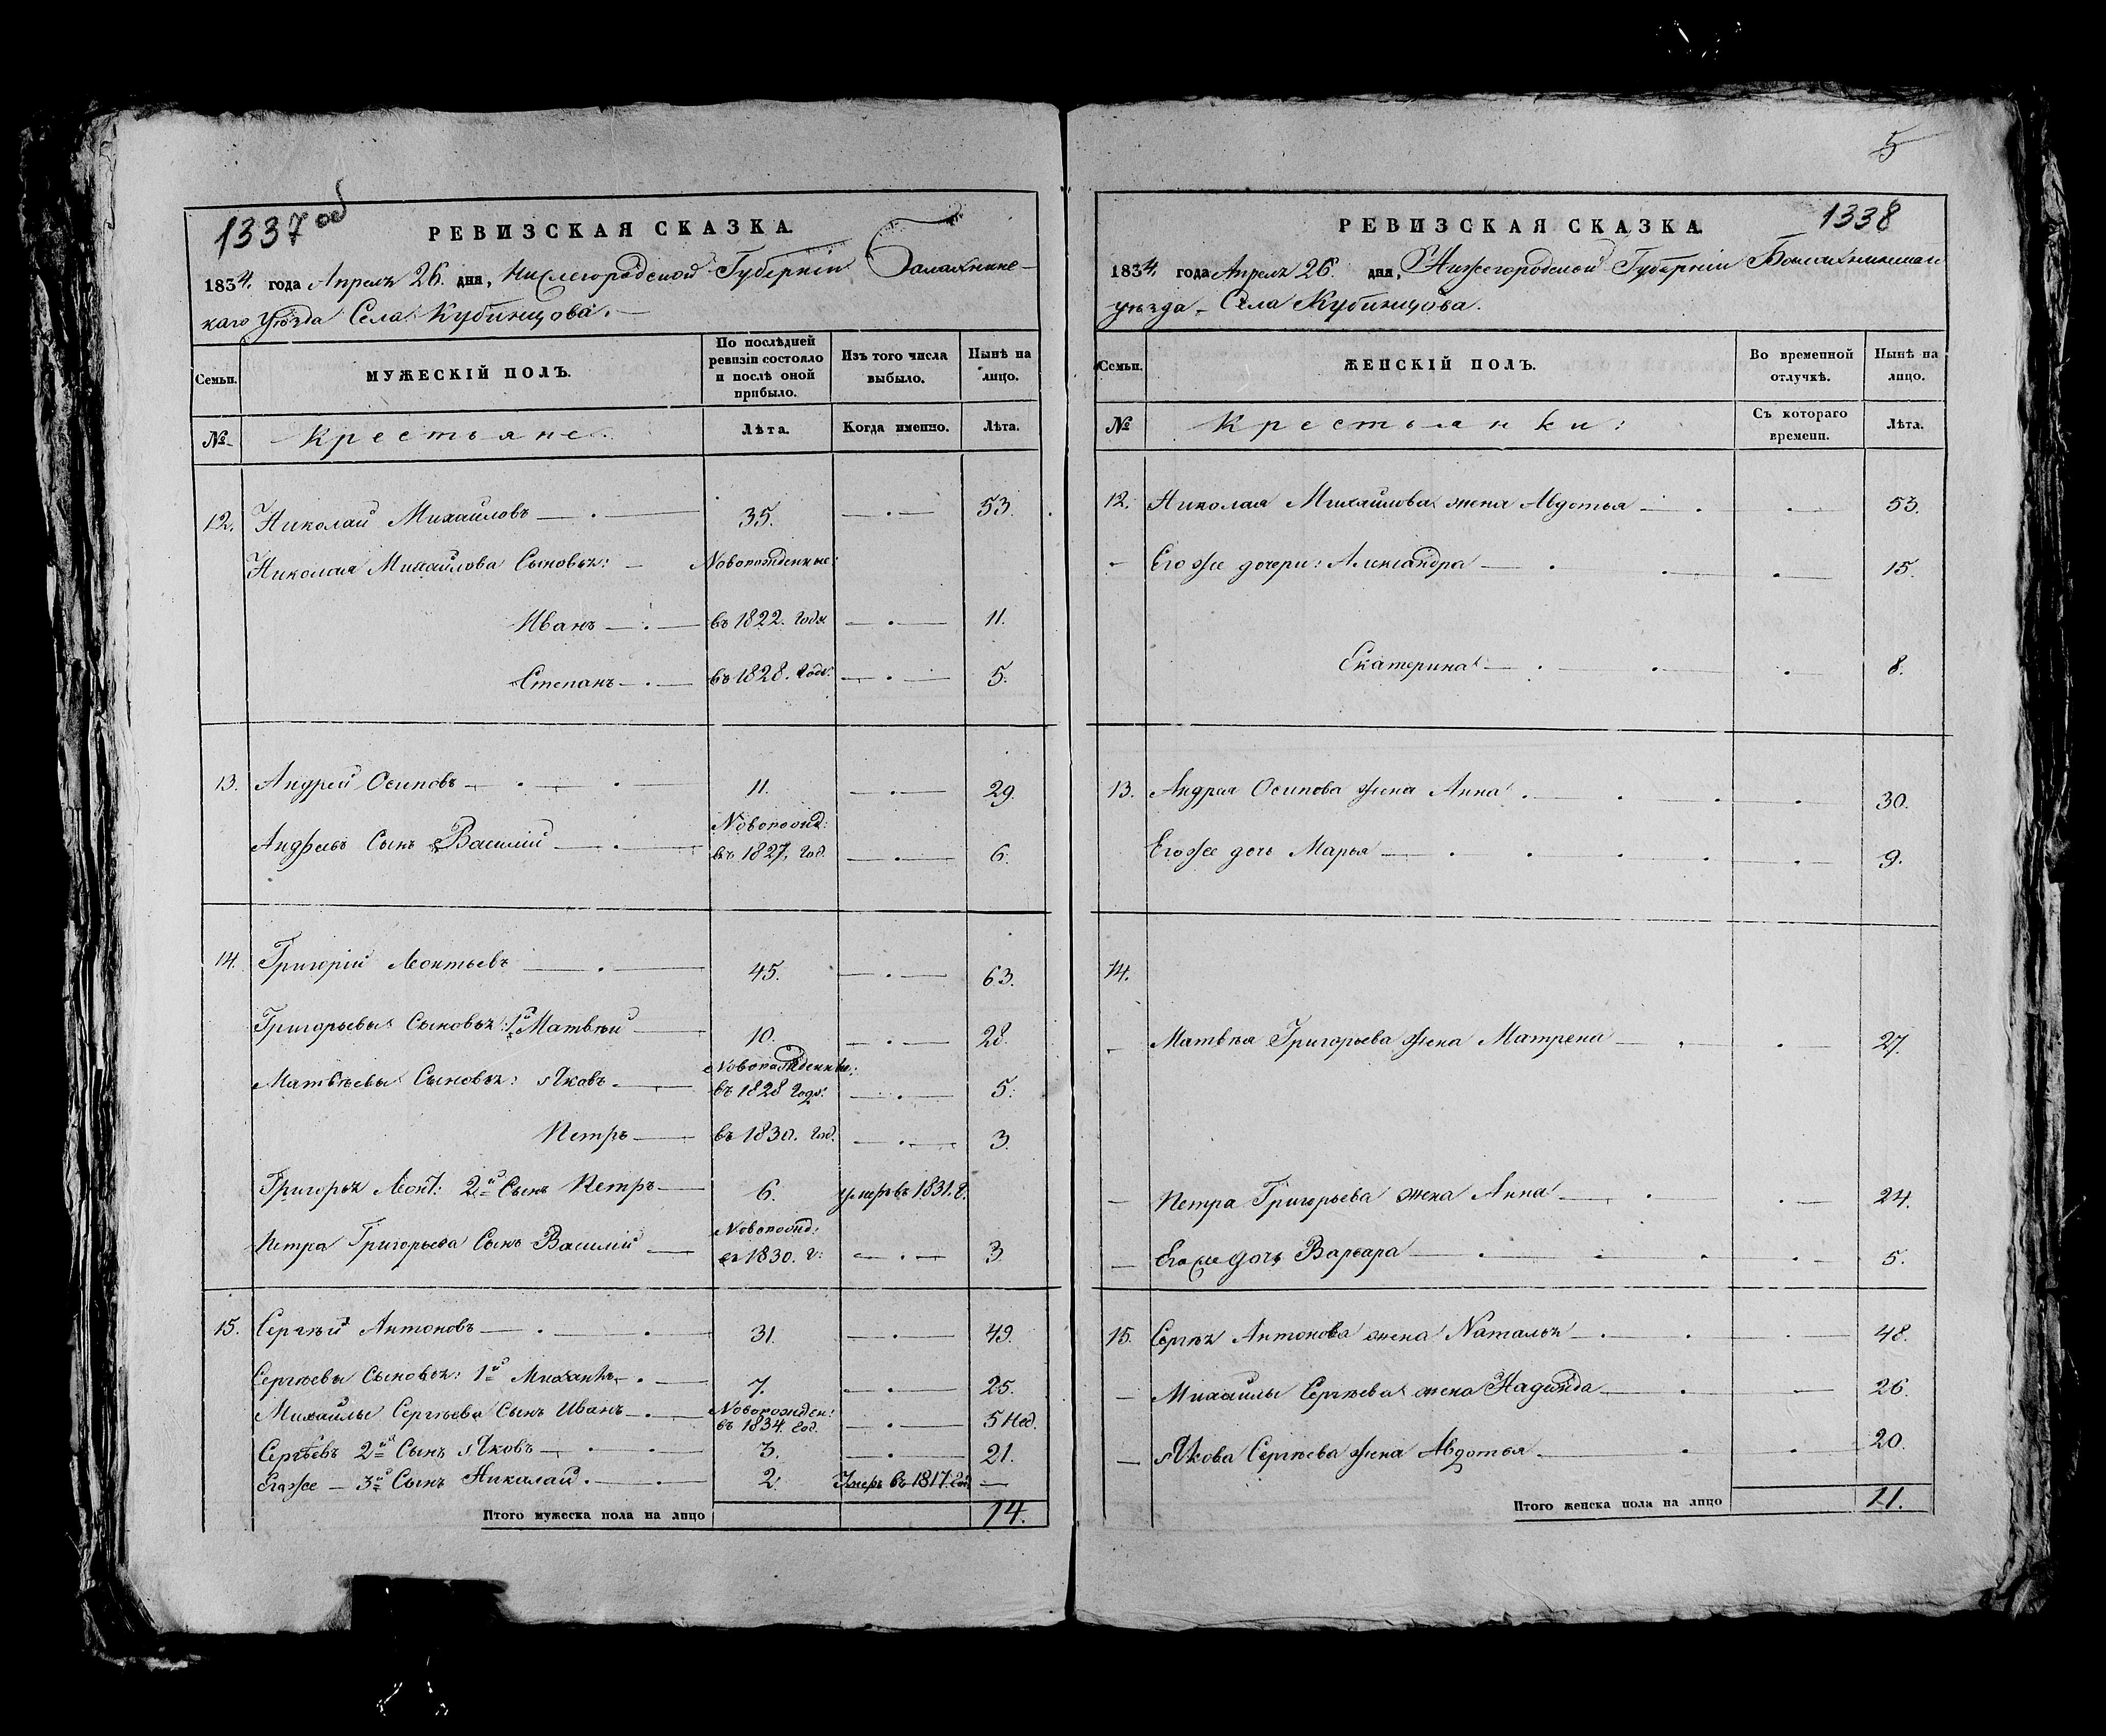 1337 об
РЕВИЗСКАЯ СКАЗКА.
1834. года Апреля 26. дня, Нижегородской Губерніи Балахнинс-
каго Уѣзда Села Кубинцова.
Семьи.
МУЖЕСКІЙ ПОЛЪ.
По послѣдней ревизіи состояло и послѣ оной прибыло.
Изъ того числа выбыло.
Нынѣ на лицо.
№
Крестьяне.
Лѣта.
Когда именно.
Лѣта.
12. Николай Михайловъ 35. 53.
Николая Михайлова Сыновья: Новорожденные:
Иванъ въ 1822. Годѣ 11.
Степанъ въ 1828. Годѣ. 5.
13. Андрей Осиповъ 11. 29.
Новорожд:
Андреевъ Сынъ Василій въ 1827, Год. 6.
14. Григорій Леонтьевъ 45. 63.
Григорьевы Сыновья: 1й Матвѣй 10. 28.
Новорожденные:
Матвѣевы Сыновья: Яковъ въ 1828 Годѣ. 5.
Петръ въ 1830. Год. 3.
Григорья Леонт: 2й Сынъ Петръ 6. умеръ въ 1831. г.
Новорожд:
Петра Григорьева Сынъ Василій въ 1830. г: 3.
15. Сергѣй Антоновъ 31. 49.
Сергѣевы Сыновья: 1й Михайла 7. 25.
Новорожден:
Михайлы Сергѣева Сынъ Иванъ въ 1834. Год. 5 Нед.
Сергѣевъ 2й Сынъ Яковъ 3. 21.
Его же 3й Сынъ Николай 2. Умеръ въ 1817. Год
Итого мужеска пола на лицо 14.
5
1338
РЕВИЗСКАЯ СКАЗКА.
1834. года Апреля 26. дня, Нижегородской Губерніи Балахнинскаго
уѣзда Села Кубинцова.
Семьи.
ЖЕНСКІЙ ПОЛЪ.
Во временной отлучкѣ.
Нынѣ на лицо.
№
Крестьянки:
Съ котораго времени.
Лѣта.
12. Николая Михайлова жена Авдотья 53.
Его же дочери: Александра 15.
Екатерина 8.
13. Андрея Осипова жена Анна 30.
Его же дочь Марья 9.
14.
Матвѣя Григорьева жена Матрена 27.
Петра Григорьева жена Анна 24.
Его же дочь Варвара 5.
15. Сергѣя Антонова жена Наталья 48.
Михайлы Сергѣева жена Надежда 26.
Якова Сергѣева жена Авдотья 20.
Итого женска пола на лицо 11.